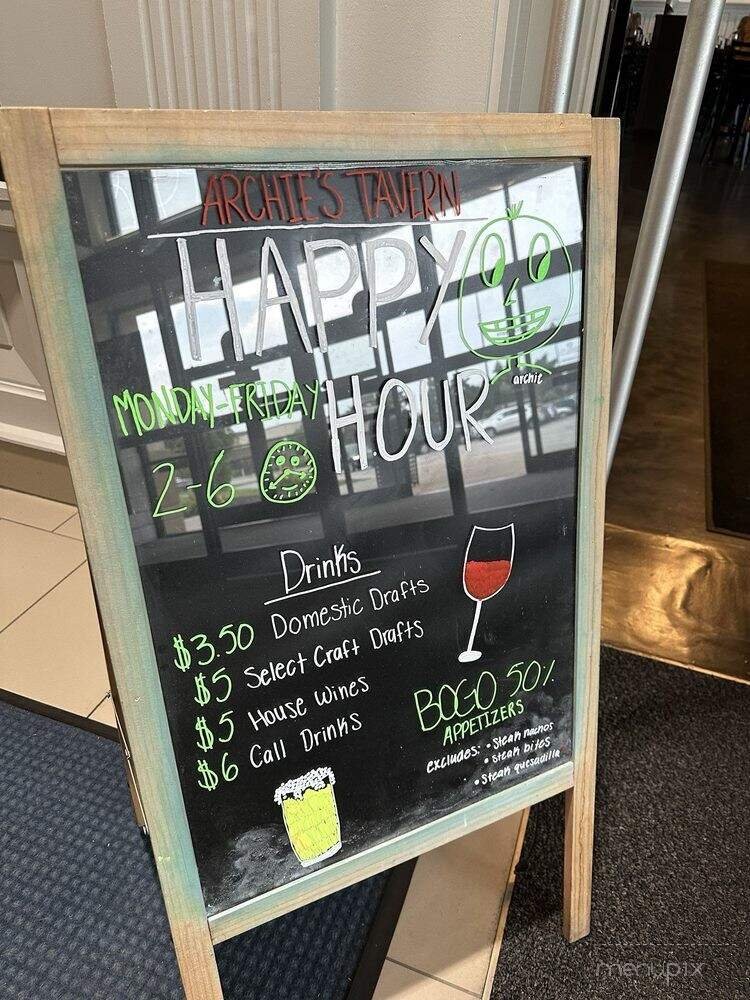 ARCHIE'S TAVERN
HAPPY
HOUR
archie
MONDAY-FRIDAY
2-6
Drinks
$3.50 Domestic Drafts
$5 Select Craft Drafts
$5 House Wines
$6 Call Drinks
BOGO 50%
APPETIZERS
excludes: • Steak nachos
• Steak bites
• Steak quesadilla
menupix